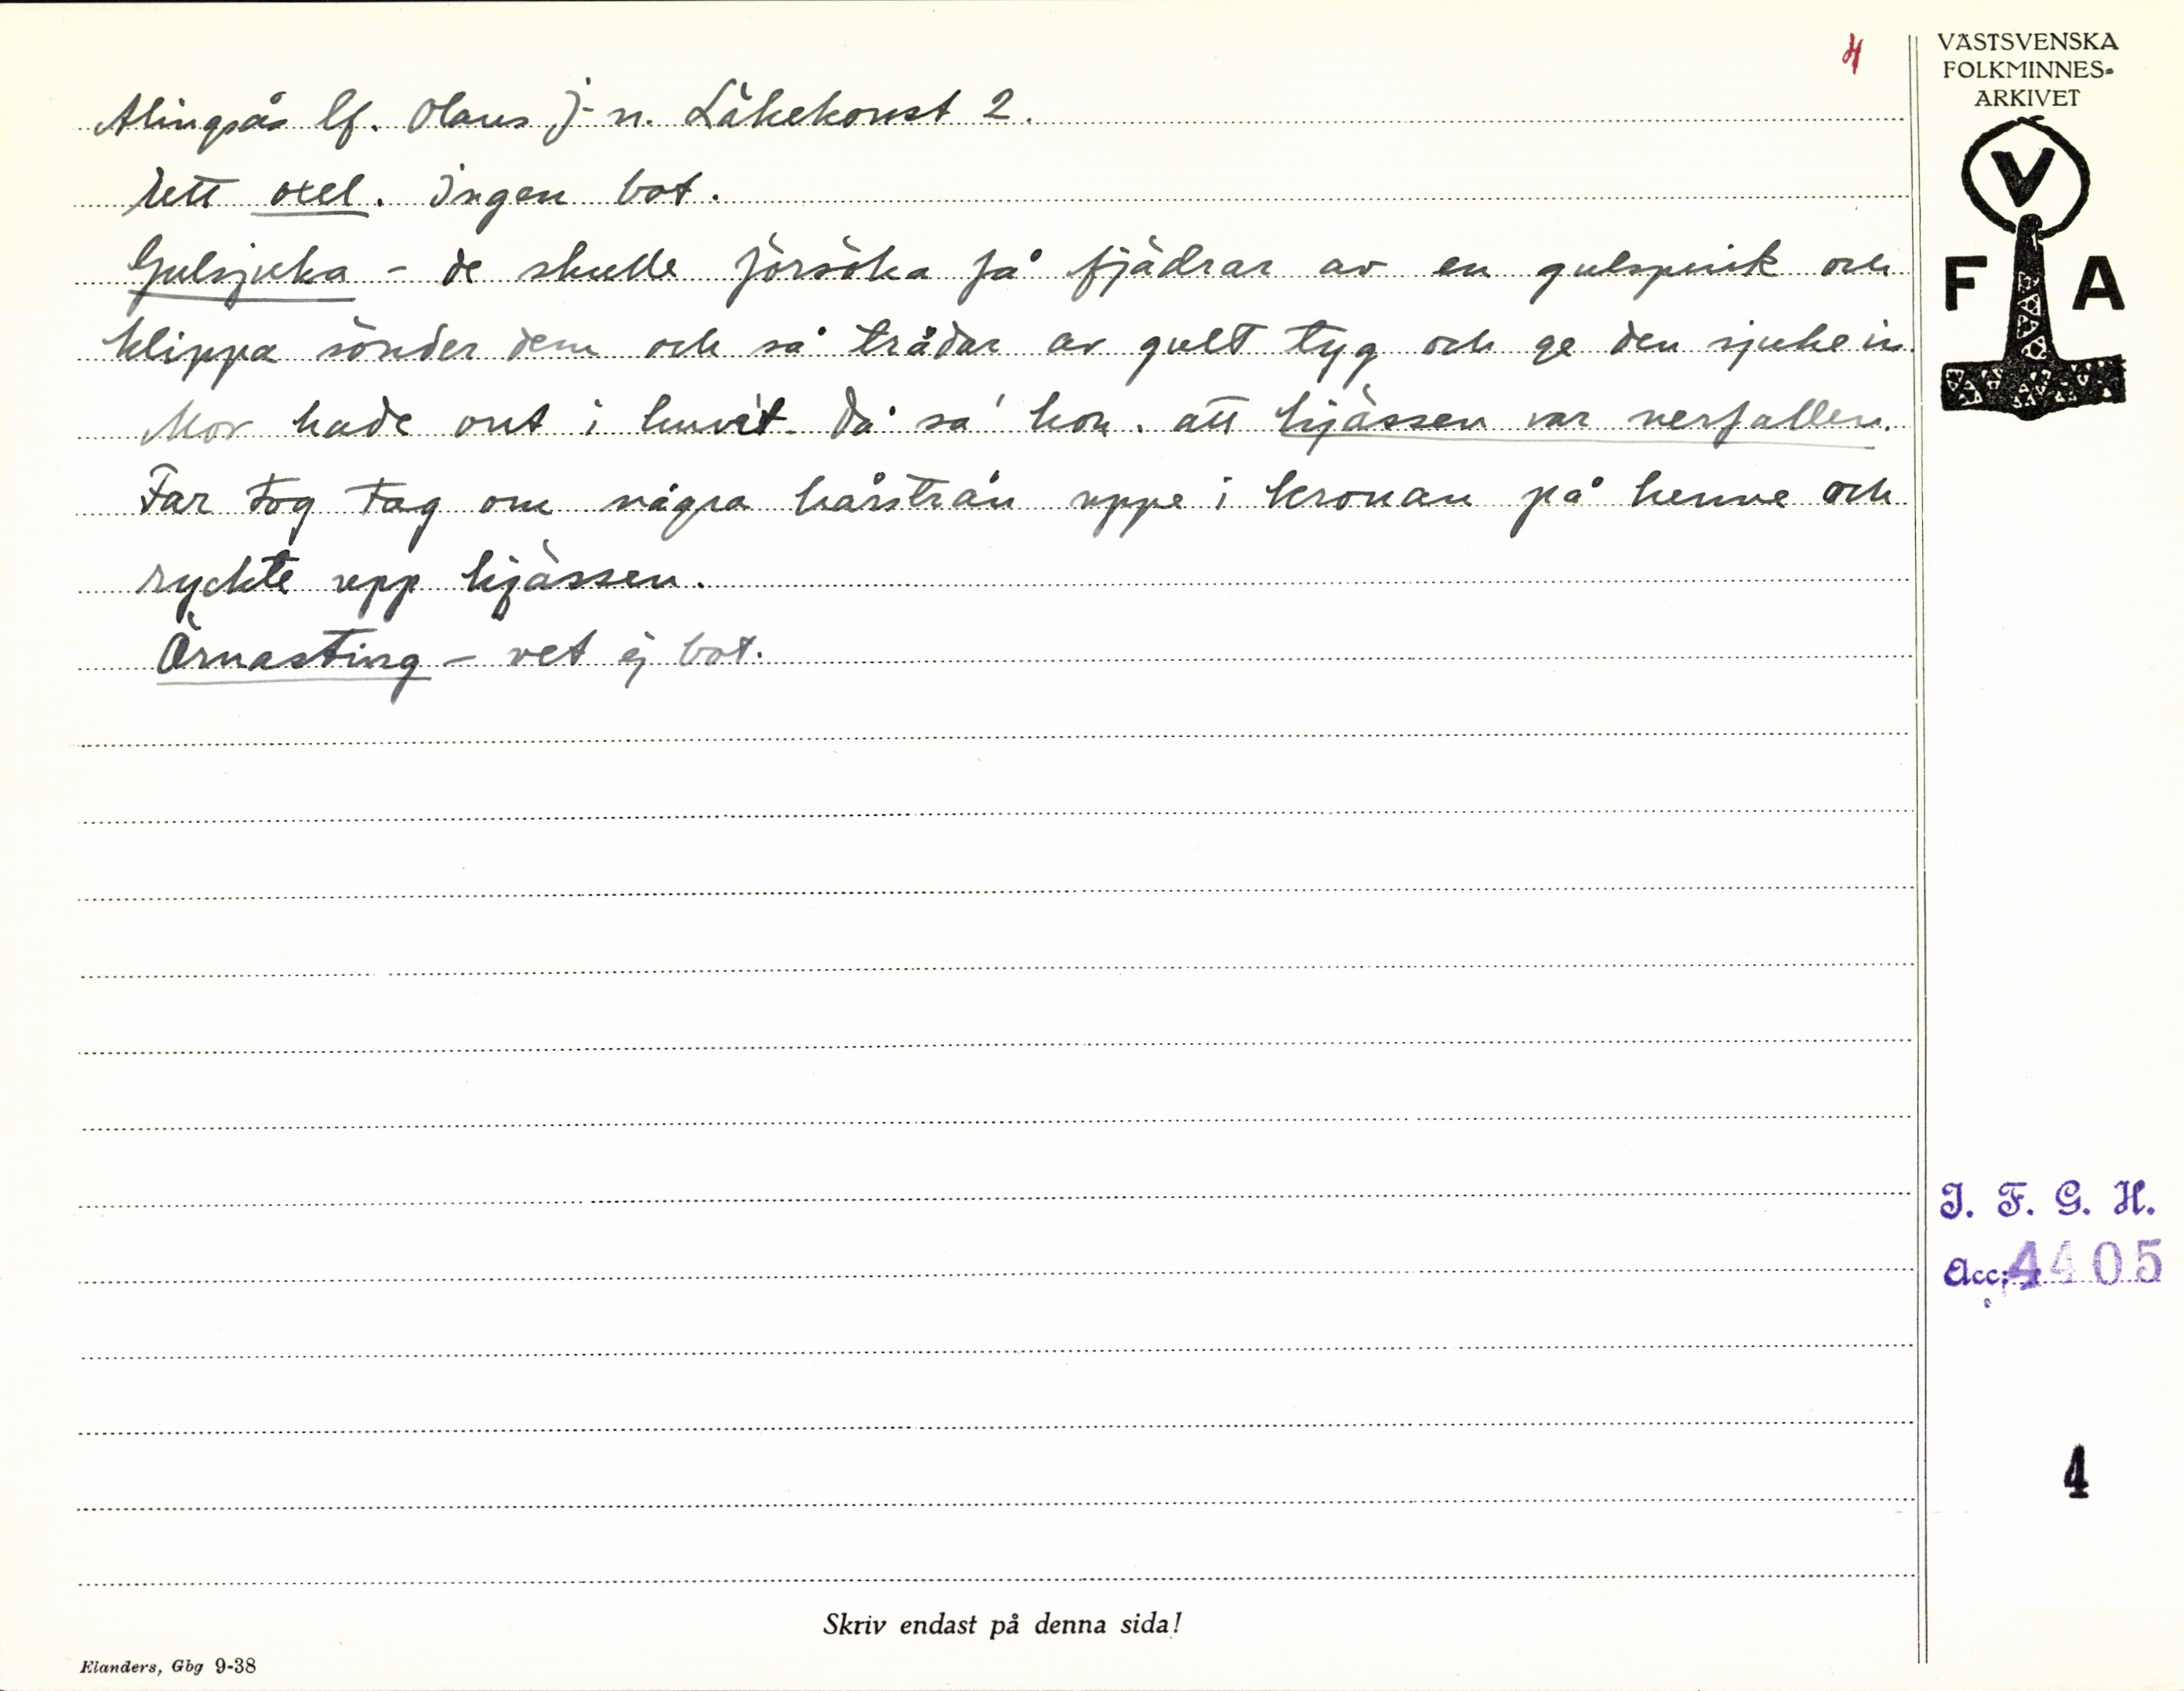 4
VÄSTSVENSKA
FOLKMINNES-
ARKIVET
V
F A
Alingsås lf. Olaus J-n. Läkekonst 2.
oxel. Ingen bot.
Gulsjuka - de skulle försöka få fjädrar av en gulspink och
klippa sönder dem och så trådar av gult tyg och ge den sjuke in.
Mor hade ont i huvet. Då sa' hon. att hjässen var nerfallen.
Far tog tag om några hårstrån uppe i kronan på henne och
ryckte upp hjässen.
Örnasting - vet ej bot.
I. F. G. H.
Acc. 4405
4
Skriv endast på denna sida!
Elanders, Gbg 9-38